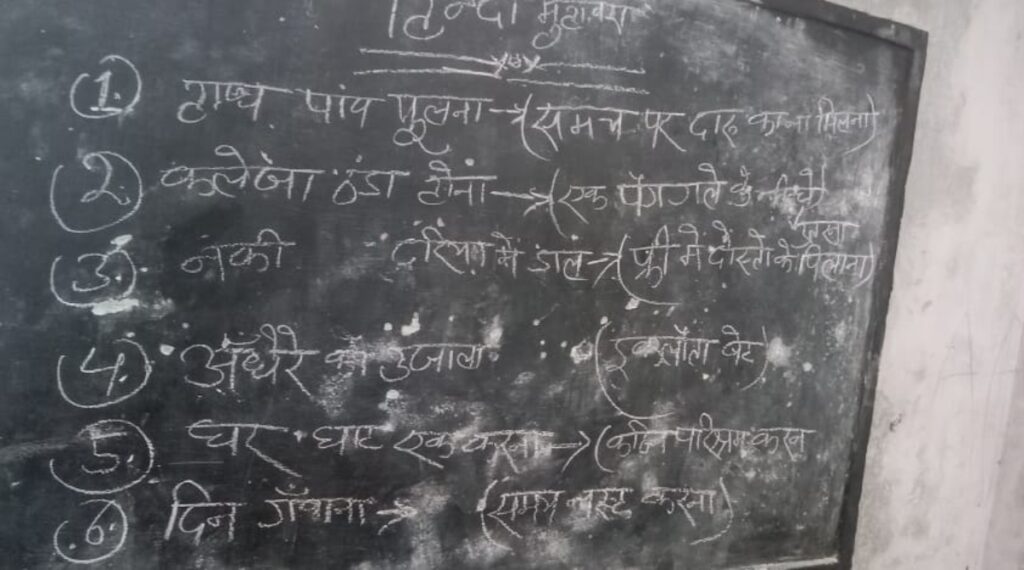 हिन्दी मुहावरा
1. हाथ पांव फूलना → (समय पर दारू का ना मिलना)
2. कलेजा ठंडा होना → (एक पैग गले के नीचे
3. नेकी दरिया में डाल → (फ्री में दोस्तो को पिलाना)
4. अँधेरे का उजाला (इकलौता बेटा)
5. घर घाट एक करना → (कठिन परिश्रम करना
6. दिन गँवाना → (समय नष्ट करना)